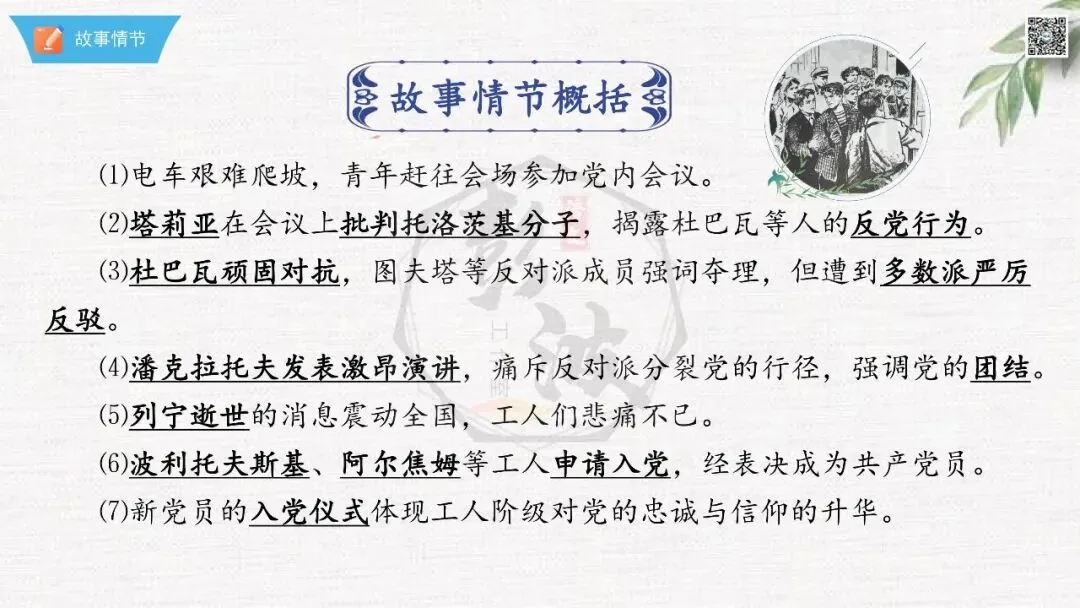 故事情节
故事情节概括
(1)电车艰难爬坡，青年赶往会场参加党内会议。
(2)塔莉亚在会议上批判托洛茨基分子，揭露杜巴瓦等人的反党行为。
(3)杜巴瓦顽固对抗，图夫塔等反对派成员强词夺理，但遭到多数派严厉
反驳。
(4)潘克拉托夫发表激昂演讲，痛斥反对派分裂党的行径，强调党的团结。
(5)列宁逝世的消息震动全国，工人们悲痛不已。
(6)波利托夫斯基、阿尔焦姆等工人申请入党，经表决成为共产党员。
(7)新党员的入党仪式体现工人阶级对党的忠诚与信仰的升华。